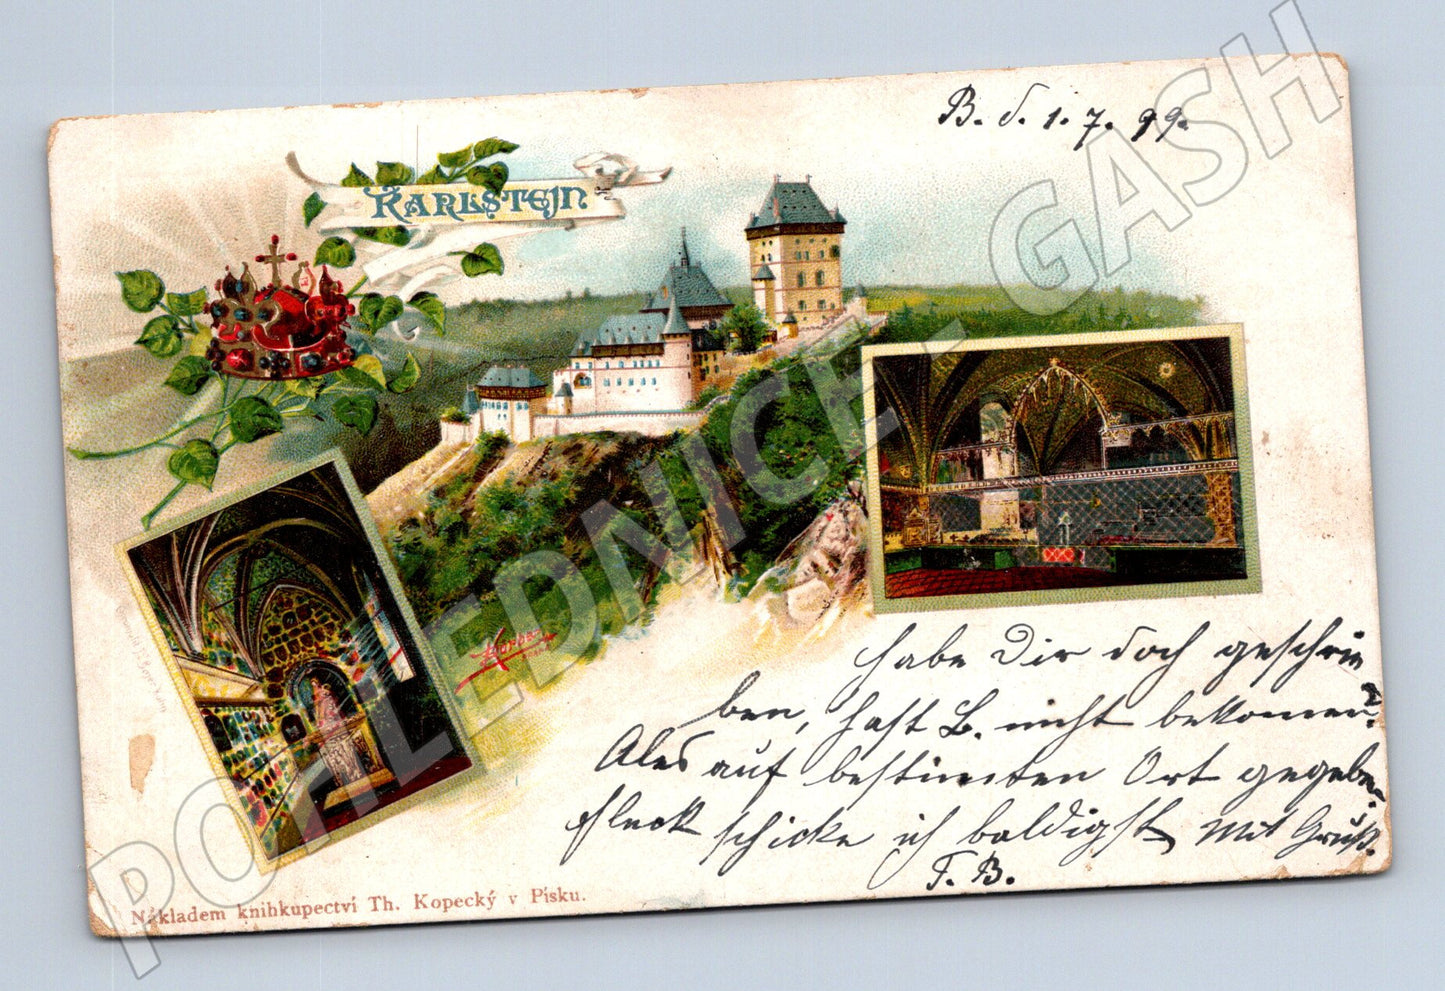 B. d. 1. 7. 99.
KARLSTEJN
habe Dir doch geschrie
ben, hast B. nicht bekommen?
Ales auf bestimten Ort gegeben
schicke ich baldigst Mit Gruß.
F. B.
Nákladem knihkupectví Th. Kopecký v Písku.
POHLEDNICE GASH